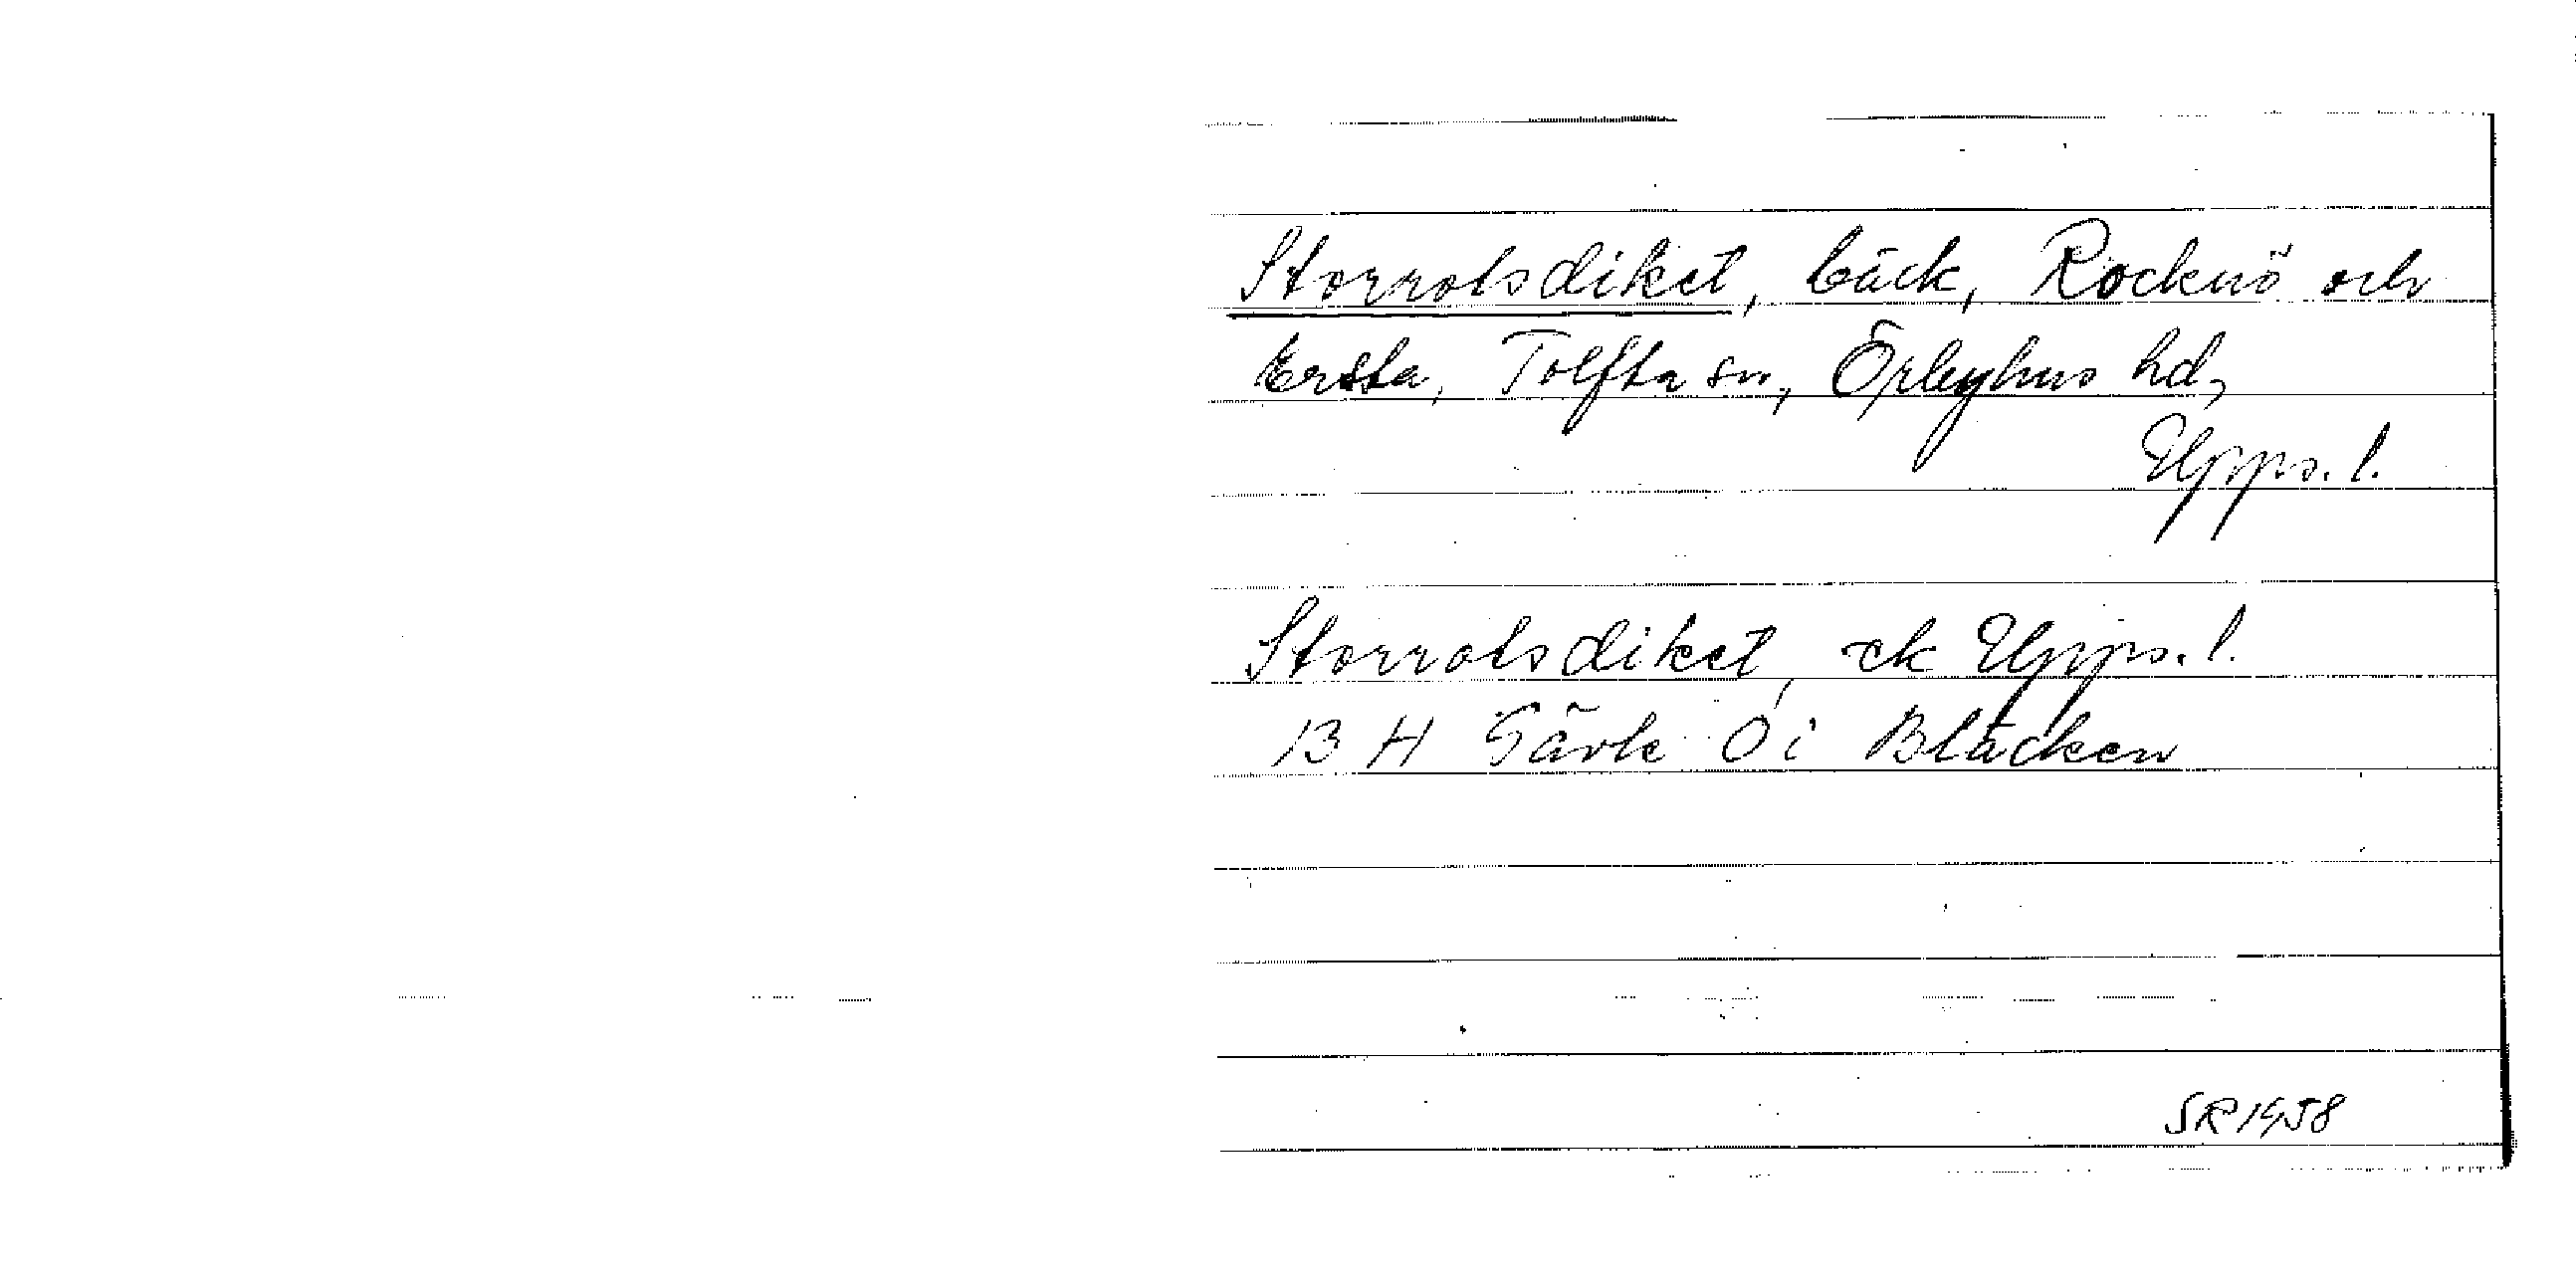 Storrotsdiket, bäck, Rocknö och
Ersta, Tolfta sn, Örbyhus hd,
Upps. l.
Storrotsdiket, ek Upps. l.
13 H Gävle Öi Bläcken
SR 1958